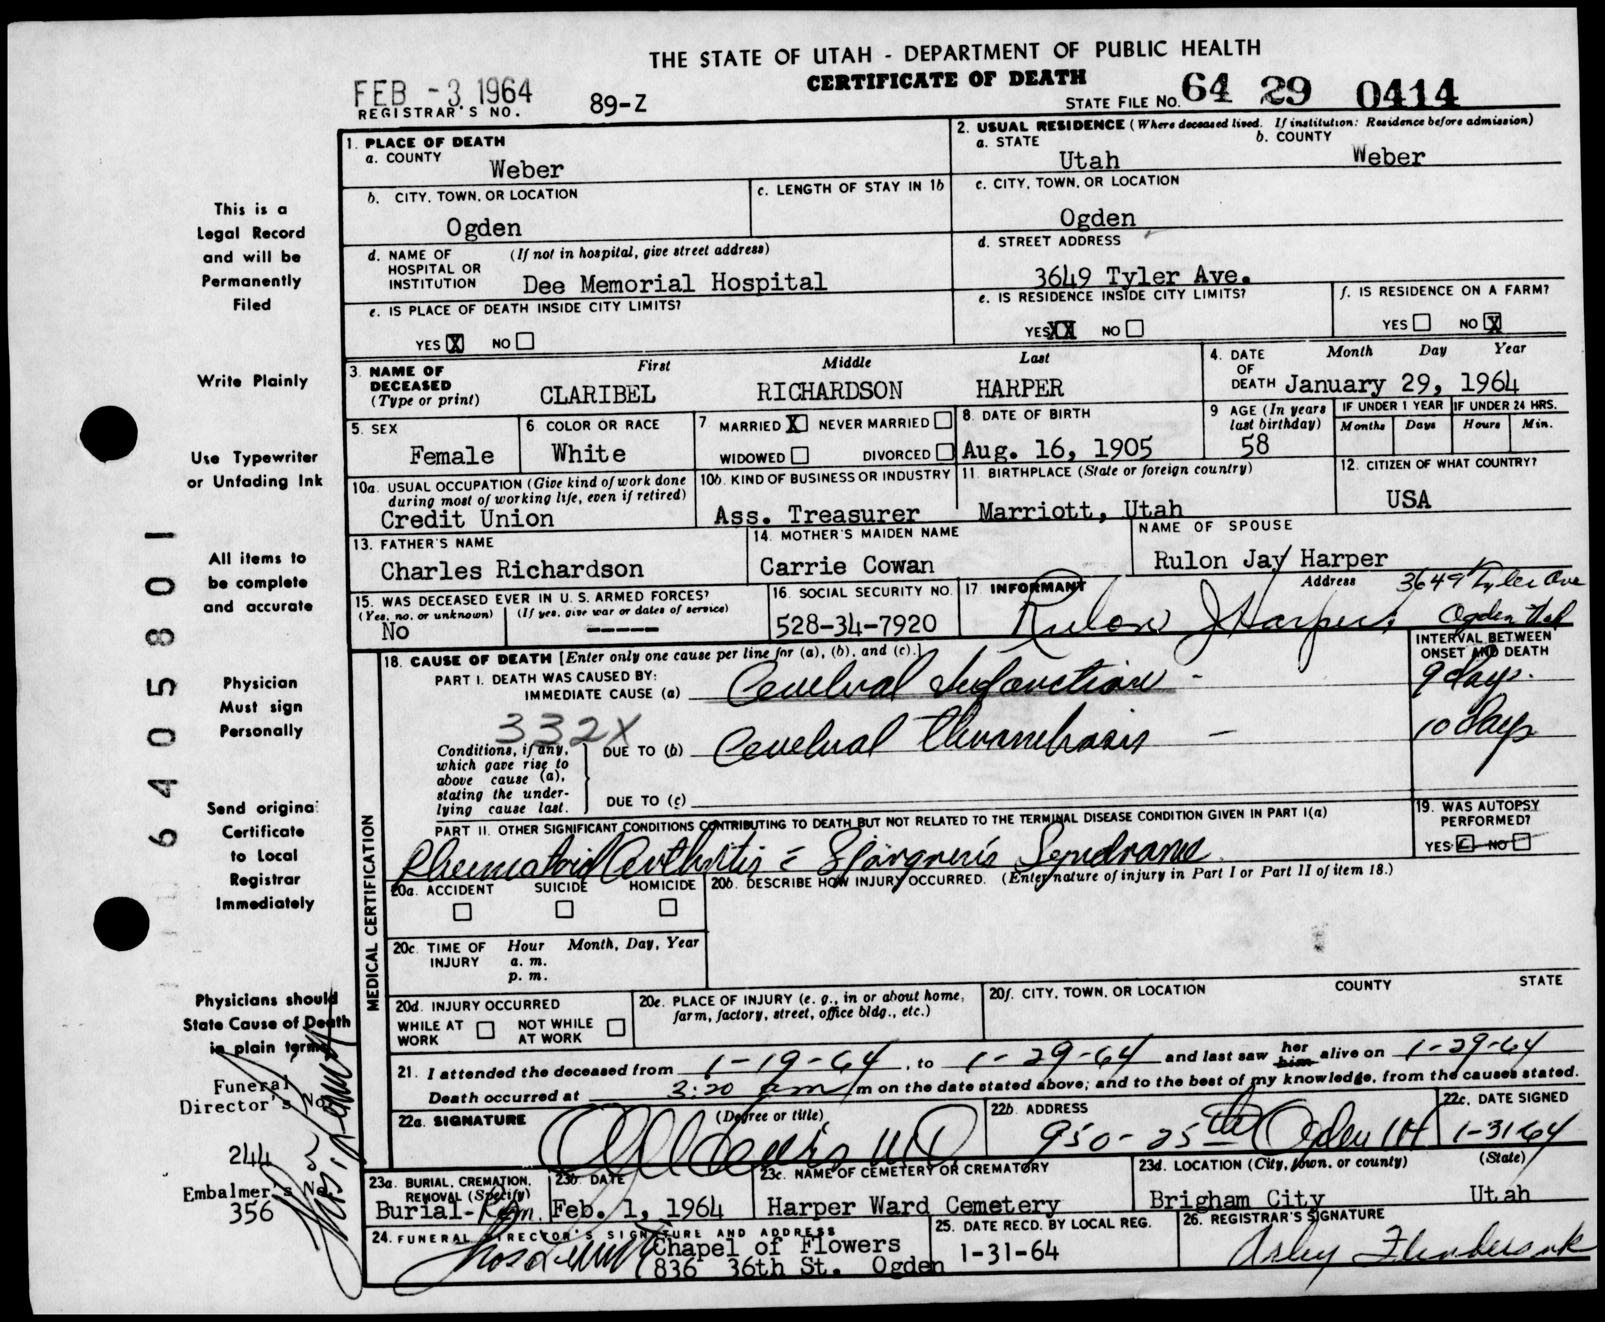 THE STATE OF UTAH - DEPARTMENT OF PUBLIC HEALTH
CERTIFICATE OF DEATH
FEB -3 1964
REGISTRAR'S NO. 89-Z
STATE FILE NO. 64 29 0414
1. PLACE OF DEATH
a. COUNTY
Weber
2. USUAL RESIDENCE (Where deceased lived. If institution: Residence before admission)
a. STATE b. COUNTY
Utah Weber
b. CITY, TOWN, OR LOCATION
Ogden
c. LENGTH OF STAY IN 1b
c. CITY, TOWN, OR LOCATION
Ogden
d. NAME OF HOSPITAL OR INSTITUTION (If not in hospital, give street address)
Dee Memorial Hospital
d. STREET ADDRESS
3649 Tyler Ave.
e. IS PLACE OF DEATH INSIDE CITY LIMITS?
YES X NO
e. IS RESIDENCE INSIDE CITY LIMITS?
YES XX NO
f. IS RESIDENCE ON A FARM?
YES NO X
3. NAME OF DECEASED (Type or print)
First Middle Last
CLARIBEL RICHARDSON HARPER
4. DATE OF DEATH
Month Day Year
January 29, 1964
5. SEX
Female
6 COLOR OR RACE
White
7 MARRIED X NEVER MARRIED
WIDOWED DIVORCED
8. DATE OF BIRTH
Aug. 16, 1905
9 AGE (In years last birthday)
58
IF UNDER 1 YEAR
Months Days
IF UNDER 24 HRS.
Hours Min.
10a. USUAL OCCUPATION (Give kind of work done during most of working life, even if retired)
Credit Union
10b. KIND OF BUSINESS OR INDUSTRY
Ass. Treasurer
11. BIRTHPLACE (State or foreign country)
Marriott, Utah
12. CITIZEN OF WHAT COUNTRY?
USA
13. FATHER'S NAME
Charles Richardson
14. MOTHER'S MAIDEN NAME
Carrie Cowan
NAME OF SPOUSE
Rulon Jay Harper
15. WAS DECEASED EVER IN U.S. ARMED FORCES?
(Yes, no, or unknown) (If yes, give war or dates of service)
No -----
16. SOCIAL SECURITY NO.
528-34-7920
17. INFORMANT Address
Rulon J Harper 3649 Tyler Ave
Ogden Utah
MEDICAL CERTIFICATION
18. CAUSE OF DEATH [Enter only one cause per line for (a), (b), and (c).]
INTERVAL BETWEEN ONSET AND DEATH
PART I. DEATH WAS CAUSED BY:
IMMEDIATE CAUSE (a) Cerebral Infarction - 9 days.
332X
Conditions, if any, which gave rise to above cause (a), stating the underlying cause last.
DUE TO (b) Cerebral Thrombosis - 10 days
DUE TO (c)
PART II. OTHER SIGNIFICANT CONDITIONS CONTRIBUTING TO DEATH BUT NOT RELATED TO THE TERMINAL DISEASE CONDITION GIVEN IN PART I(a)
Rheumatoid Arthritis = Sjorgren's Syndrome
19. WAS AUTOPSY PERFORMED?
YES NO
20a. ACCIDENT SUICIDE HOMICIDE
20b. DESCRIBE HOW INJURY OCCURRED. (Enter nature of injury in Part I or Part II of item 18.)
20c. TIME OF INJURY
Hour Month, Day, Year
a. m.
p. m.
20d. INJURY OCCURRED
WHILE AT WORK NOT WHILE AT WORK
20e. PLACE OF INJURY (e. g., in or about home, farm, factory, street, office bldg., etc.)
20f. CITY, TOWN, OR LOCATION COUNTY STATE
21. I attended the deceased from 1-19-64, to 1-29-64 and last saw her him alive on 1-29-64
Death occurred at 3:20 am m on the date stated above; and to the best of my knowledge, from the causes stated.
22a. SIGNATURE (Degree or title)
MD
22b. ADDRESS
950-25th Ogden
22c. DATE SIGNED
1-31-64
23a. BURIAL, CREMATION, REMOVAL (Specify)
Burial-Rem.
23b DATE
Feb. 1, 1964
23c. NAME OF CEMETERY OR CREMATORY
Harper Ward Cemetery
23d. LOCATION (City, town, or county) (State)
Brigham City Utah
24. FUNERAL DIRECTOR'S SIGNATURE AND ADDRESS
Chapel of Flowers
836 36th St. Ogden
25. DATE RECD. BY LOCAL REG.
1-31-64
26. REGISTRAR'S SIGNATURE
This is a
Legal Record
and will be
Permanently
Filed
Write Plainly
Use Typewriter
or Unfading Ink
All items to
be complete
and accurate
Physician
Must sign
Personally
Send original
Certificate
to Local
Registrar
Immediately
Physicians should
State Cause of Death
in plain terms
Funeral
Director's No.
244
Embalmer's No.
356
6405801